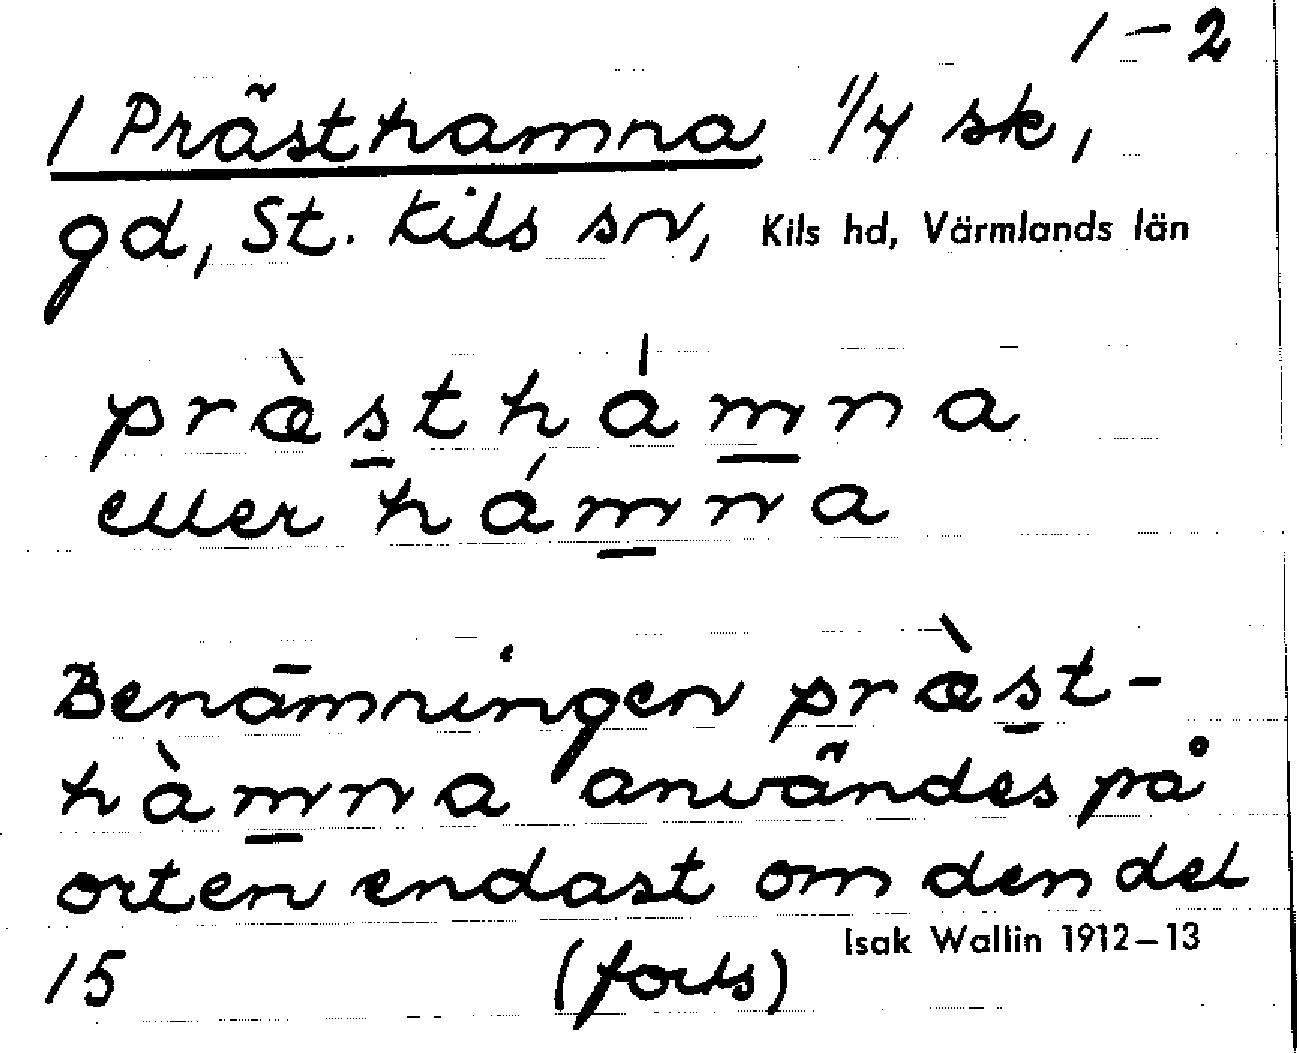 1-2
1 Prästhamna 1/4 sk,
gd, St. Kils sn, Kils hd, Värmlands län
præ̀s̲thám̲na
eller hám̲na
Benämningen præ̀s̲t-
hàm̲na användes på
orten endast om den del
15 (forts) Isak Wallin 1912-13